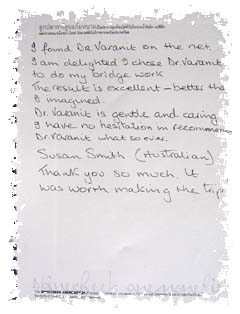 I found Dr. Varanit on the net.
I am delighted I chose Dr. Varanit
to do my bridge work
The result is excellent - better tha
I imagined.
Dr. Varanit is gentle and caring
I have no hesitation in recommend
Dr. Varanit what so ever.
Susan Smith (Australian)
Thank you so much. It
was worth making the trip